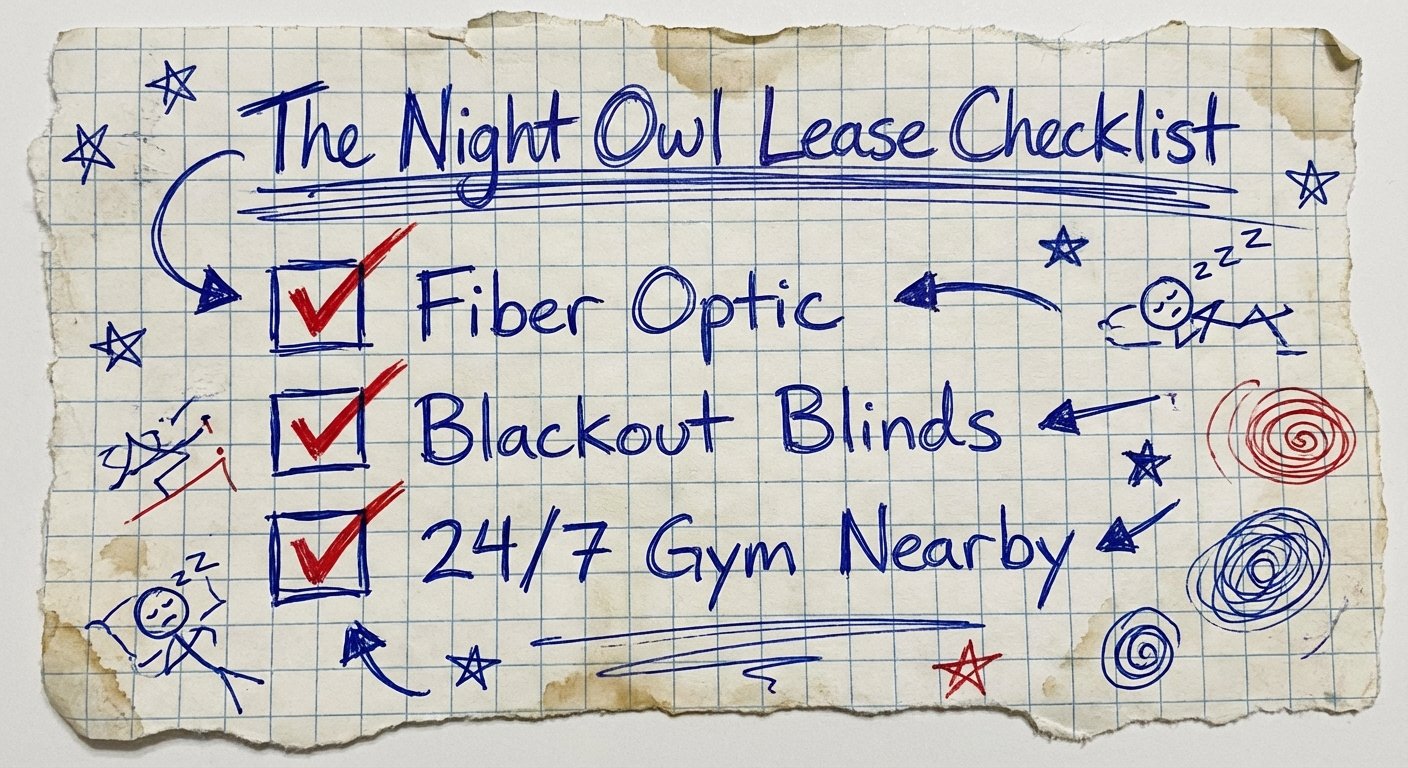 The Night Owl Lease Checklist
Fiber Optic
Blackout Blinds
24/7 Gym Nearby
z z z
z z z